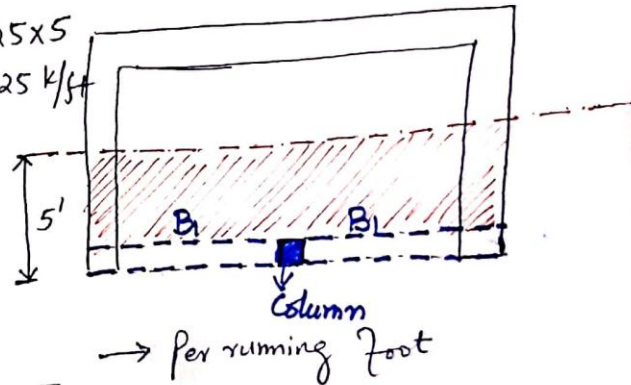 25x5
25 k/ft
5'
B1 BL
Column
→ Per running Foot